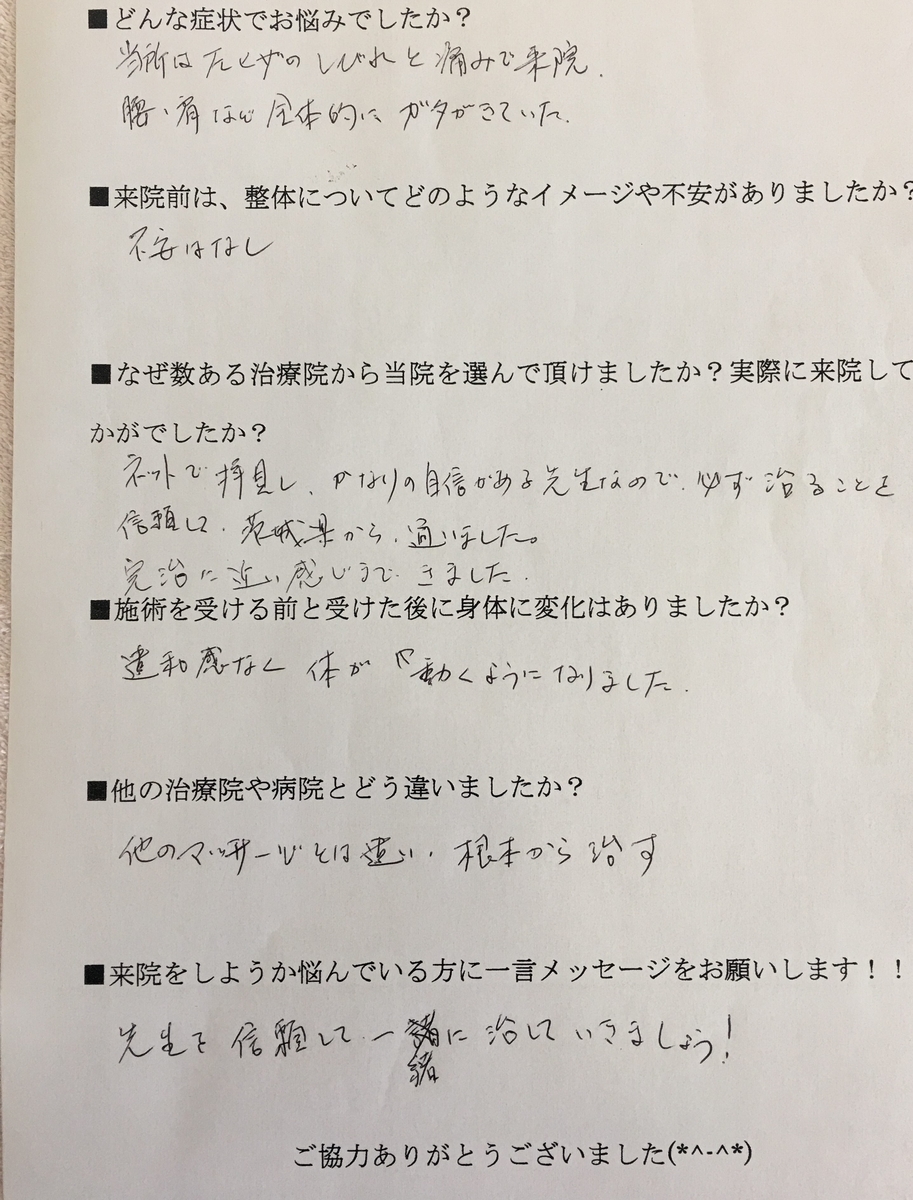 ■どんな症状でお悩みでしたか？
当所は左ヒザのしびれと痛みで来院.
腰、肩など全体的にガタがきていた.
■来院前は、整体についてどのようなイメージや不安がありましたか？
不安はなし
■なぜ数ある治療院から当院を選んで頂けましたか？実際に来院して
かがでしたか？
ネットで拝見し、かなりの自信がある先生なので、必ず治ることを
信頼して、茨城県から、通いました。
完治に近い感じまできました.
■施術を受ける前と受けた後に身体に変化はありましたか？
違和感なく 体が動くようになりました.
■他の治療院や病院とどう違いましたか？
他のマッサージとは違い、根本から治す
■来院をしようか悩んでいる方に一言メッセージをお願いします！！
先生を信頼して一緒に治していきましょう！
ご協力ありがとうございました(*^-^*)